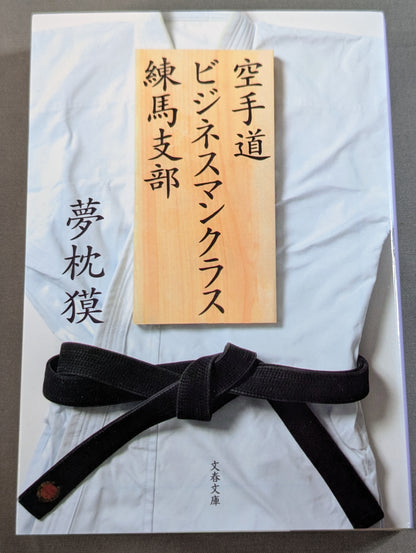 空手道
ビジネスマンクラス
練馬支部
夢枕獏
文春文庫